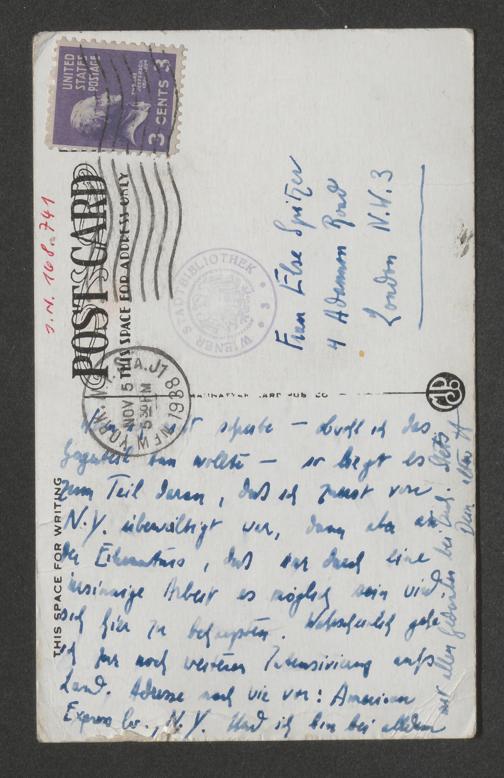 UNITED
STATES
POSTAGE
3 CENTS 3
POST CARD
THIS SPACE FOR ADDRESS ONLY
I.N. 168.741
NEW YORK, N.Y.
NOV 5
5 30 PM
1938
WIENER STADTBIBLIOTHEK
Frau Else Spitzer
4 Adamson Road
London N.W.3
MANHATTAN CARD PUB CO
THIS SPACE FOR WRITING
schreibe – obwohl ich das
Gegenteil tun wollte – so liegt es
zum Teil daran, daß ich zuerst von
N.Y. überwältigt war, dann aber von
der Erkenntnis, daß nur durch eine
Arbeit es möglich sein wird
sich hier zu behaupten. Wahrscheinlich gehe
ich zur noch weiteren Intensivierung aufs
Land. Adresse nach wie vor: American
Express Co., N.Y. Und ich bin bei alledem
mit allen Gedanken bei Euch. Stets
Dein alter H